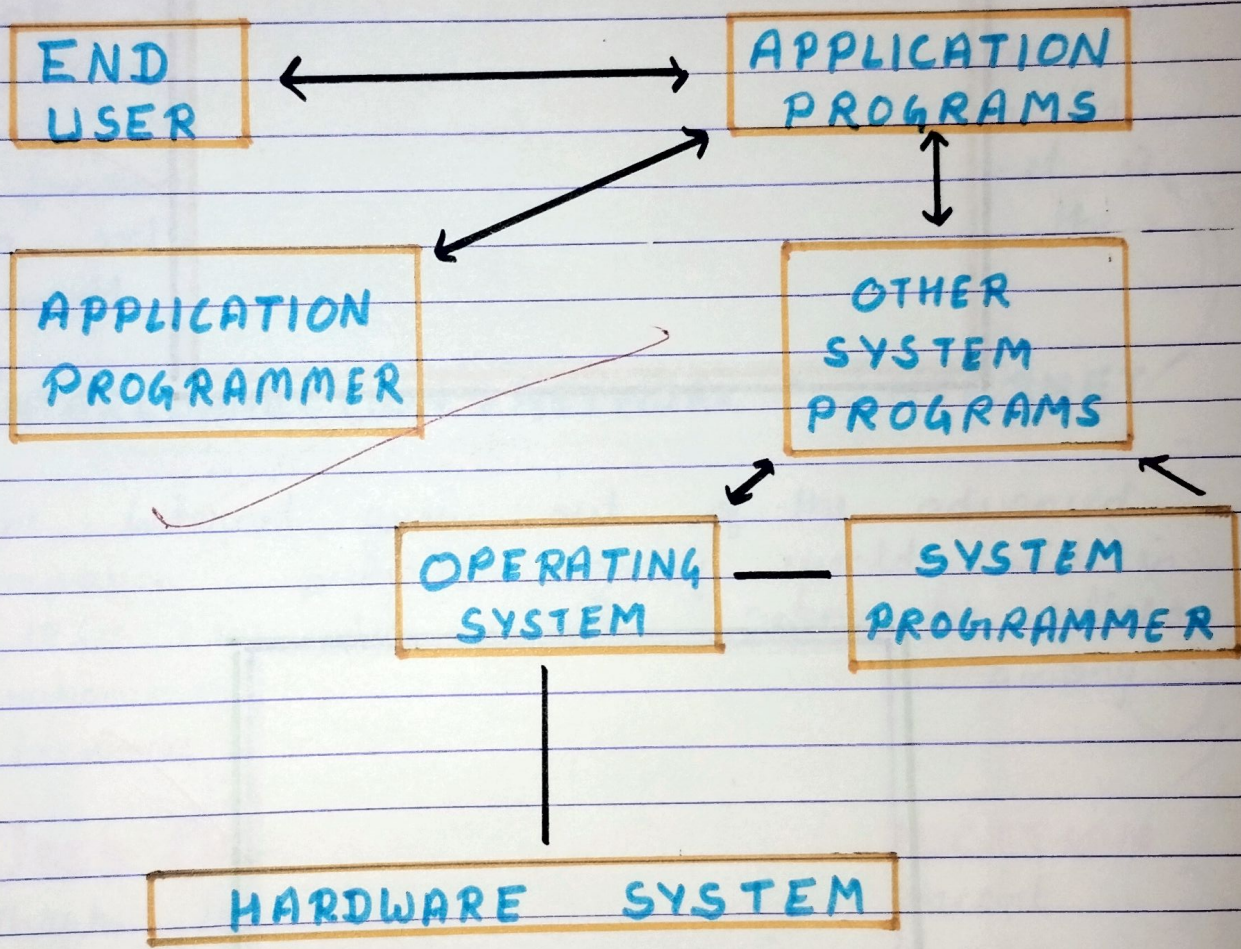 END
USER
APPLICATION
PROGRAMS
APPLICATION
PROGRAMMER
OTHER
SYSTEM
PROGRAMS
OPERATING
SYSTEM
SYSTEM
PROGRAMMER
HARDWARE SYSTEM